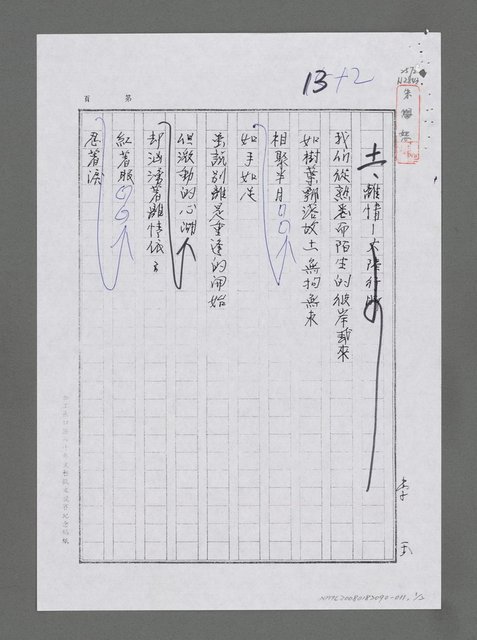 13+2
第 頁
土、離情-大陸行
我們從熟悉而陌生的彼岸歸來
如樹葉飄落故土無拘無束
相聚半月
如手如足
雖說別離是重逢的開始
但激動的心湖
卻洶湧著離情依
紅著眼
忍著淚
李玉
NMTL20080183090-011, 1/2